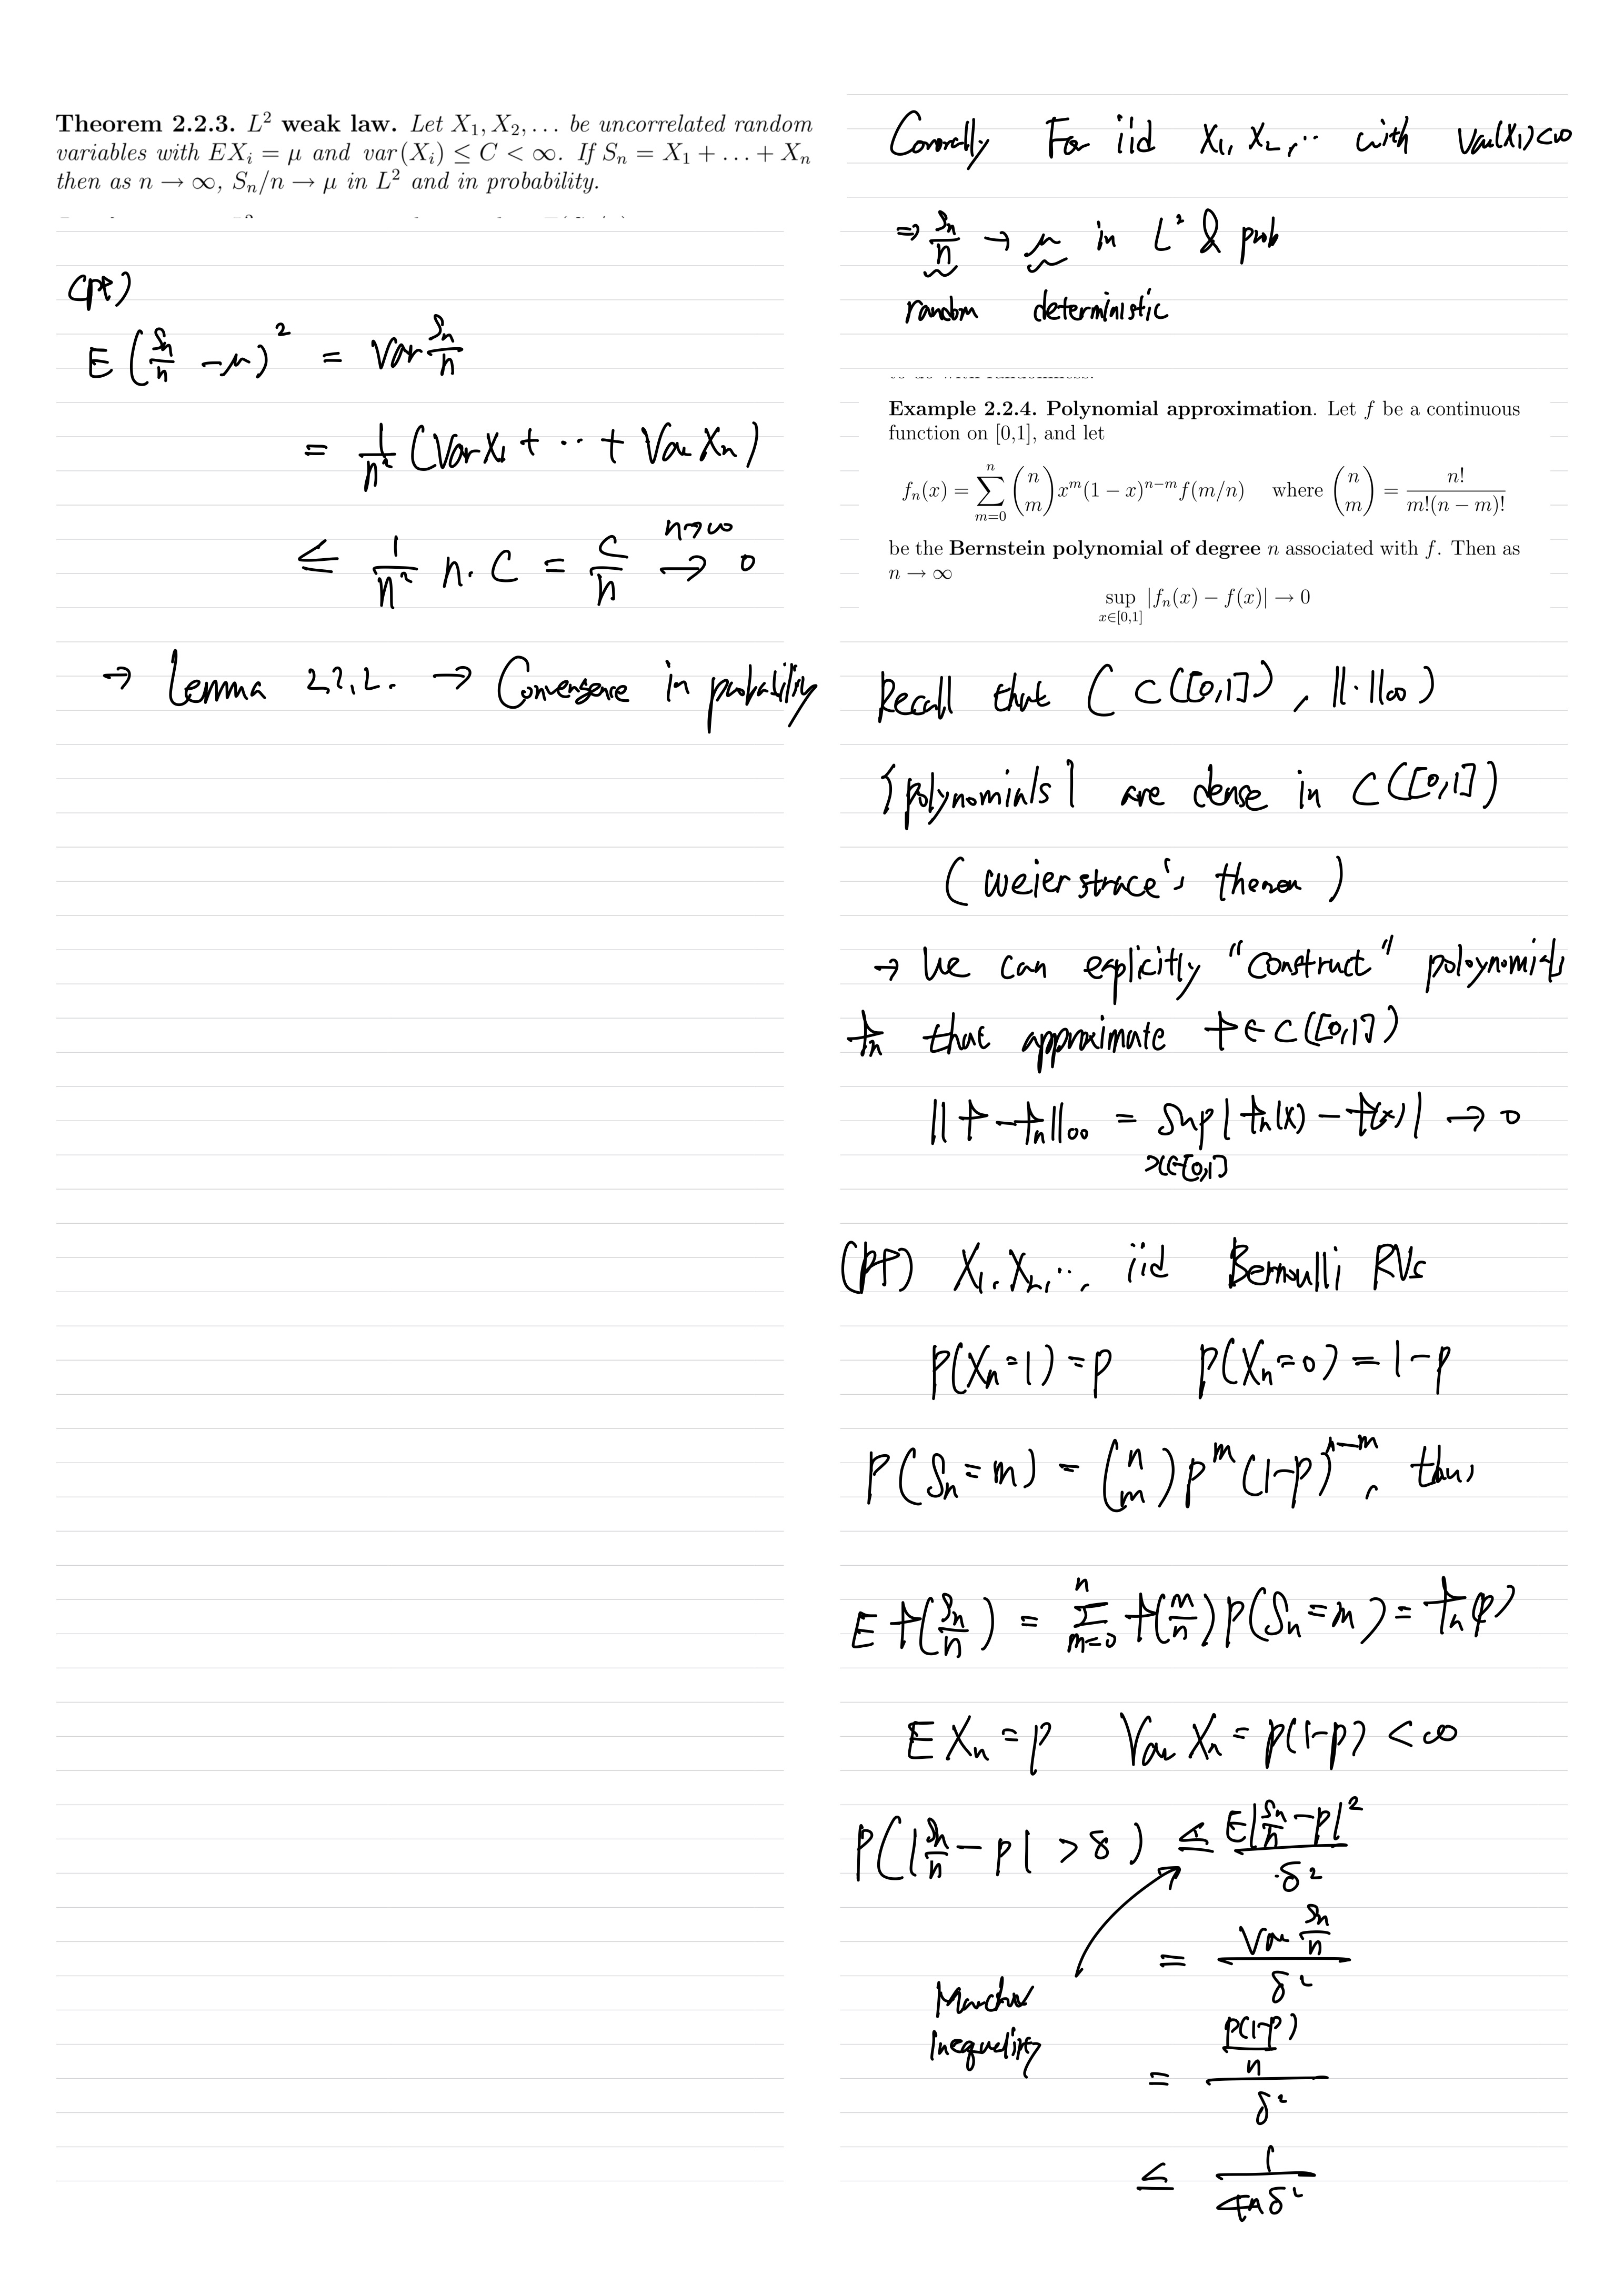 Theorem 2.2.3. L² weak law. Let X₁, X₂, . . . be uncorrelated random
variables with EXᵢ = μ and var(Xᵢ) ≤ C < ∞. If Sₙ = X₁ + . . . + Xₙ
then as n → ∞, Sₙ/n → μ in L² and in probability.
(pf)
E(Sₙ/n − μ)² = Var Sₙ/n
= 1/n² (Var X₁ + ·· + Var Xₙ)
≤ 1/n² n · C = C/n → 0 (n→∞)
→ Lemma 2.2.2. → Convergence in probability
For iid X₁, X₂, ·· with Var(X₁)<∞
⇒ Sₙ/n → μ in L² & prob
random deterministic
Example 2.2.4. Polynomial approximation. Let f be a continuous
function on [0,1], and let
fₙ(x) = ∑_{m=0}^{n} (n m) x^m (1 − x)^{n−m} f(m/n) where (n m) = n! / m!(n − m)!
be the Bernstein polynomial of degree n associated with f. Then as
n → ∞
sup_{x∈[0,1]} |fₙ(x) − f(x)| → 0
Recall that (C([0,1]), ||·||∞)
{polynomials} are dense in C([0,1])
(weierstrace's )
→ We can explicitly "construct" poloynomials
fₙ that approximate f ∈ C([0,1])
||f − fₙ||∞ = sup_{x∈[0,1]} |fₙ(x) − f(x)| → 0
(pf) X₁, X₂, ··, iid Bernoulli RVs
P(Xₙ=1) = p P(Xₙ=0) = 1−p
P(Sₙ=m) = (n m) p^m (1−p)^{n−m}, thus
E f(Sₙ/n) = ∑_{m=0}^{n} f(m/n) P(Sₙ=m) = fₙ(p)
E Xₙ = p Var Xₙ = p(1−p) < ∞
P(|Sₙ/n − p| > δ) ≤ E|Sₙ/n − p|² / δ²
= Var Sₙ/n / δ²
Inequality
= p(1−p)/n / δ²
≤ 1 / 4nδ²